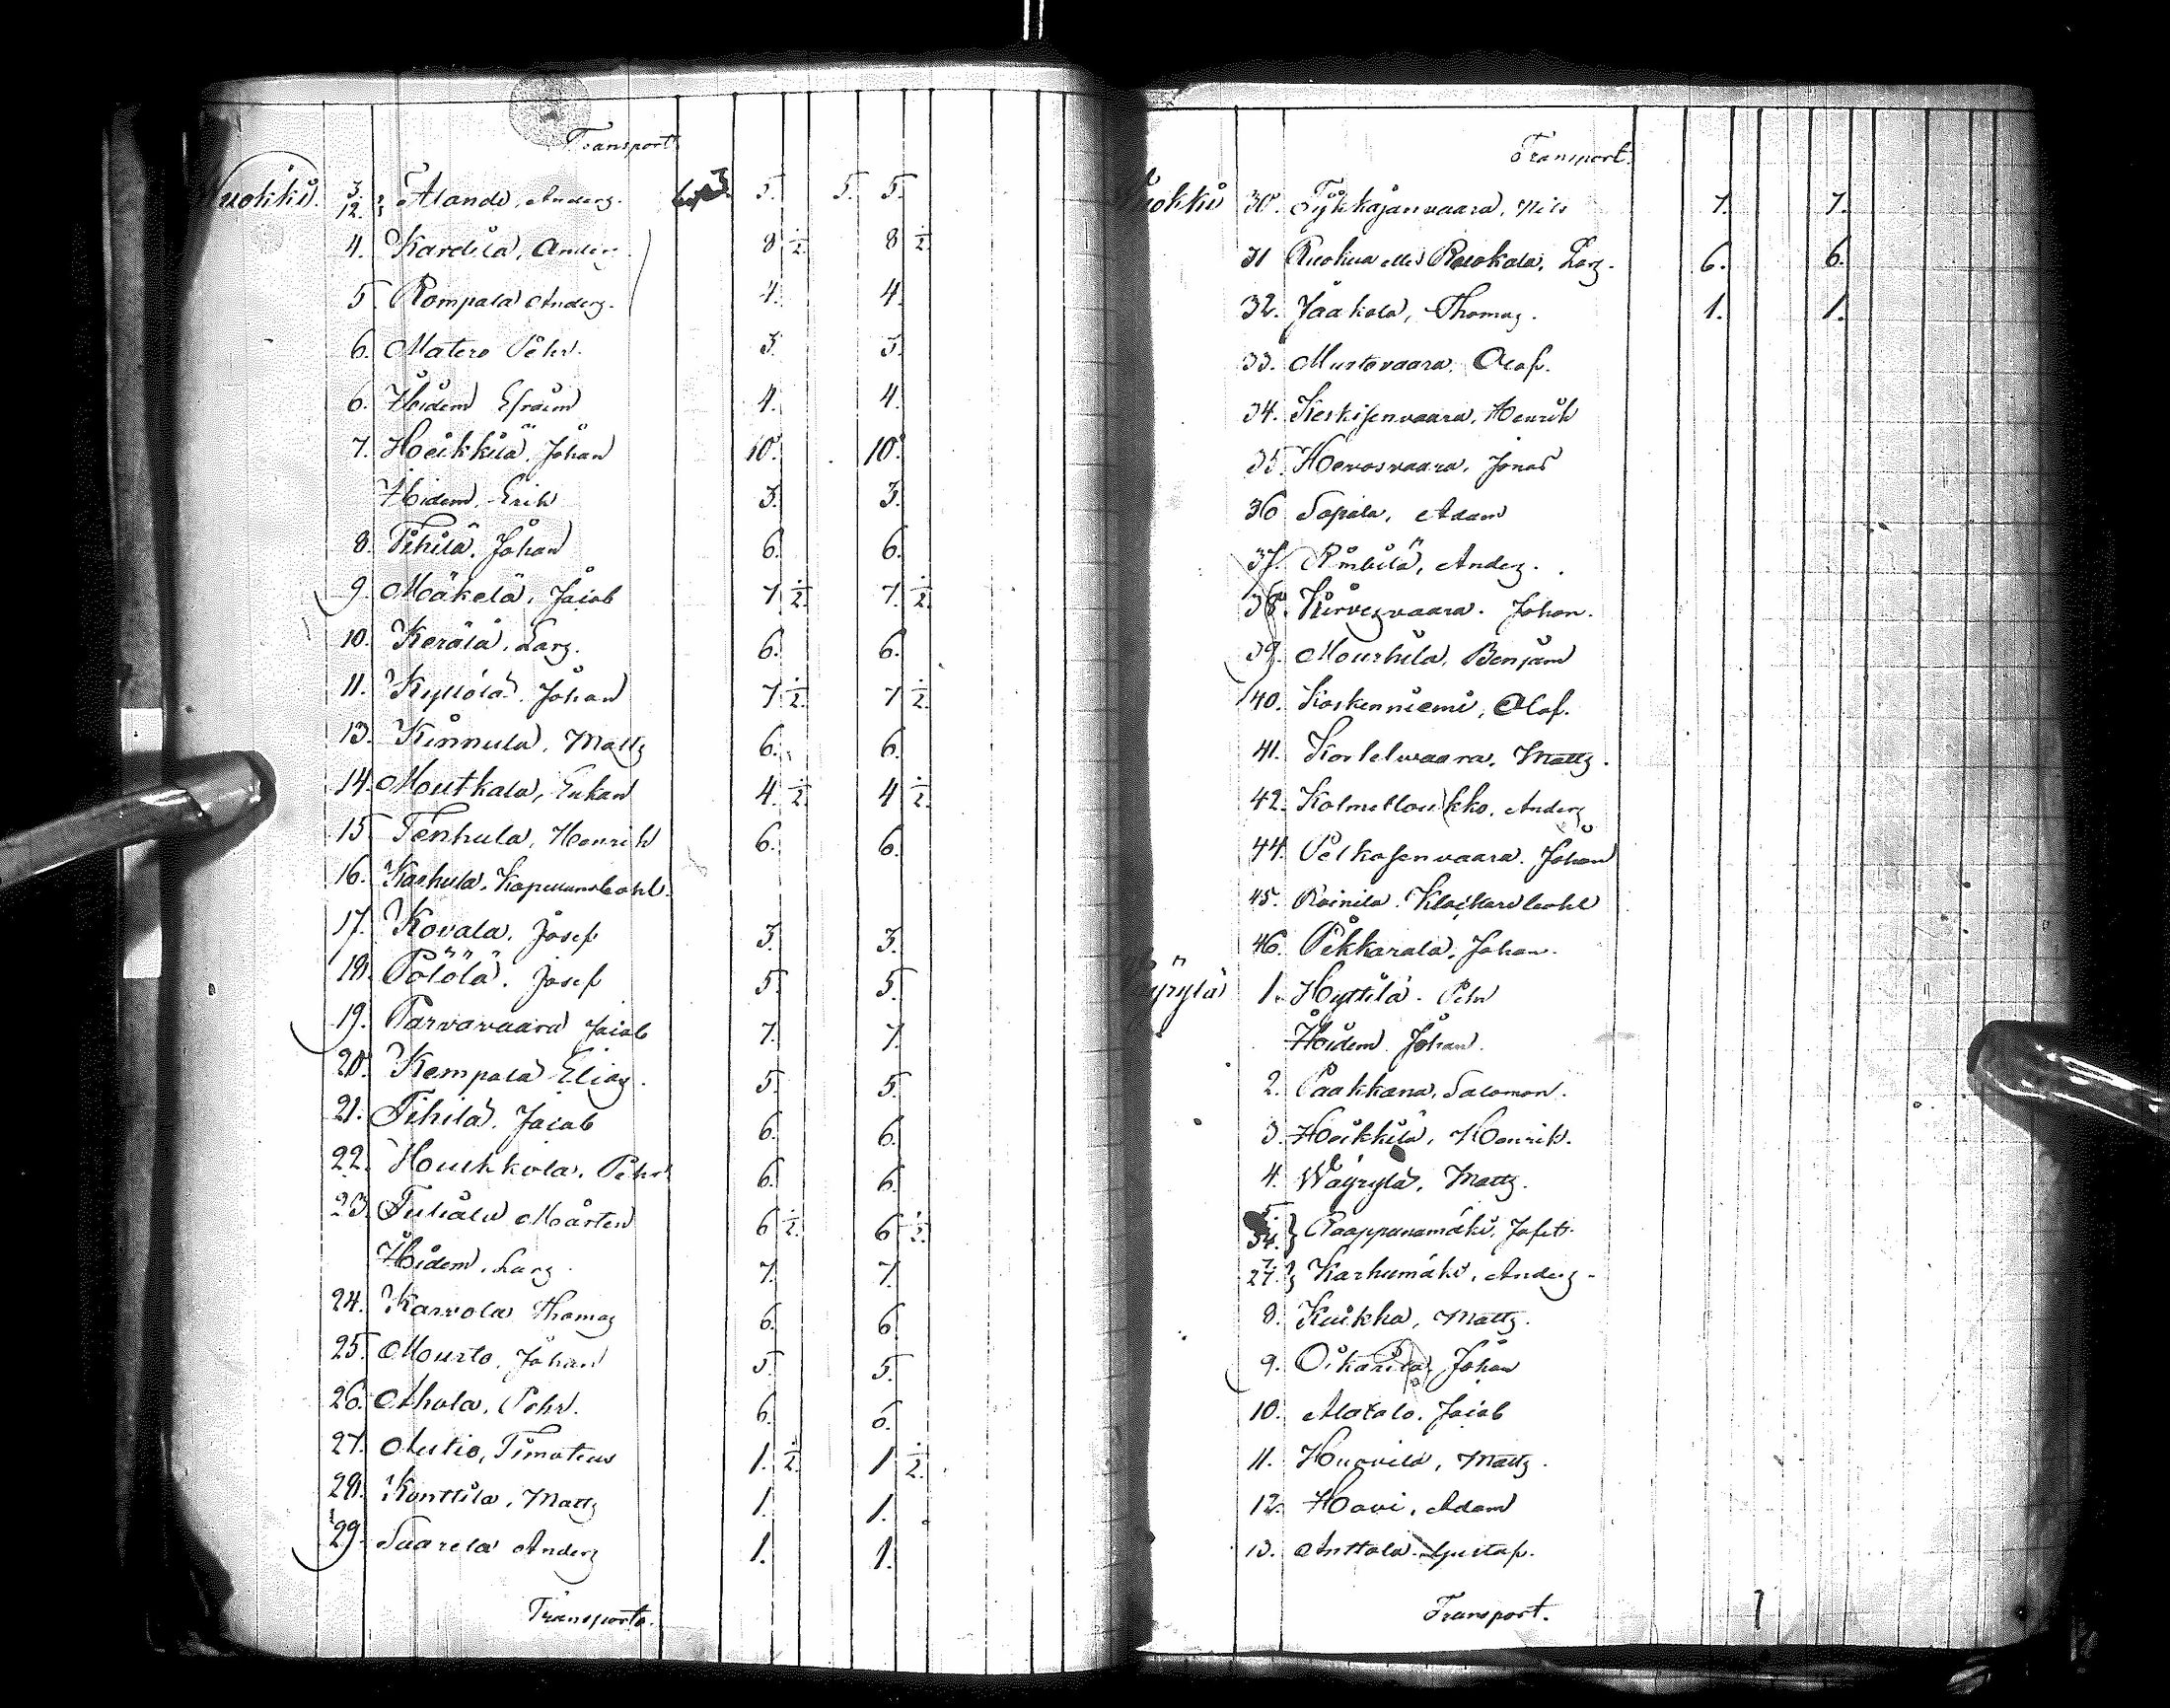 Transport
uokki. 3/12 } Alando, Anderz. 5. 5. 5.
4. Karelila, Anderz 8 1/2 8 1/2
5. Rompala Anderz. 4. 4.
6. Matero Pehr. 3. 3.
6. Ibidem Efraim 4. 4.
7. Heikkilä, Johan 10. 10.
Ibidem, Erik 3. 3.
8. Pihila, Johan 6. 6.
9. Mäkelä, Jacob 7 1/2 7. 1/2
10. Kerälä, Larz. 6. 6.
11. Kyllölä, Johan 7 1/2 7 1/2
13. Kinnula, Mattz 6. 6.
14. Moutkala, Enkan 4. 1/2 4 1/2
15 Tenhula, Henrik 6. 6.
16. Karhula, Kapellansbohl.
17. Kovala, Josef 3. 3.
18. Pölölä, Josef 5. 5.
19. Parvavaara Jacob 7. 7.
20. Kempala Eliaz. 5. 5.
21. Tihila, Jacob 6. 6.
22. Houhkola, Pehr 6. 6.
23. Tuhala Mårten 6 1/2 6 1/2
Ibidem, Larz 7. 7.
24. Karvola Thomaz 6. 6
25. Mourto, Johan 5. 5.
26. Ahola, Pehr. 6. 6.
27. Autio, Timoteus 1. 1/2 1 1/2
28. Konttila, Mattz 1. 1.
29. Saarela Anderz 1. 1.
Transporto.
Transport.
uokki 30. Tykkäjänvaara, Nils 7. 7.
31 Ruokua eller Ruokola, Larz. 6. 6.
32. Jaakola, Thomaz. 1. 1.
33. Mustavaara, Olof.
34. Keskisenvaara, Henrik
35. Hevosvaara, Jonas
36 Sapala, Adam
37. Rimbilä, Anderz.
38. Kirvezvaara. Johan.
39. Mourhila, Benjam
40. Koskenniemi, Olof.
41. Kortelvaara, Mattz.
42. Kolmiloukko, Anderz
44. Pelkosenvaara. Johan
45. Rainila. Klockarebohl
46. Pekkarala, Johan.
yrylä 1. Hyttilä. Pehr
Ibidem Johan.
2. Paakkana, Salomon.
3. Heikkilä, Henrik.
4. Wäyrylä, Mattz.
} Raappanamäki, Jafet.
7. 27. } Karhumäki, Anderz.
8. Kuikka, Mattz.
9. Oikarila, Johan
10. Alatalo, Jacob
11. Hurvila, Mattz.
12. Hovi, Adam
13. Anttola. Gustaf.
Transport.